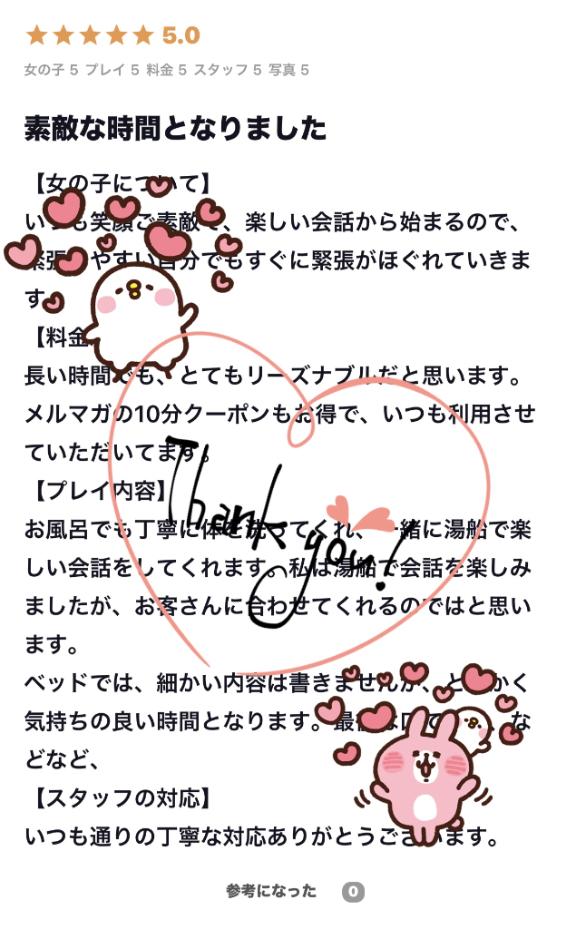 ★★★★★ 5.0
女の子 5 プレイ 5 料金 5 スタッフ 5 写真 5
素敵な時間となりました
【女の子について】
いつも笑顔ご素敵で、楽しい会話から始まるので、
緊張しやすい自分でもすぐに緊張がほぐれていきま
す。
【料金
長い時間でも、とてもリーズナブルだと思います。
メルマガの10分クーポンもお得で、いつも利用させ
ていただいてます。
【プレイ内容】
お風呂でも丁寧に体を洗ってくれ、一緒に湯船で楽
しい会話をしてくれます。私は湯船で会話を楽しみ
ましたが、お客さんに合わせてくれるのではと思い
ます。
ベッドでは、細かい内容は書きませんが、とにかく
気持ちの良い時間となります。最後は口で な
どなど、
【スタッフの対応】
いつも通りの丁寧な対応ありがとうございます。
Thank you!
参考になった 0